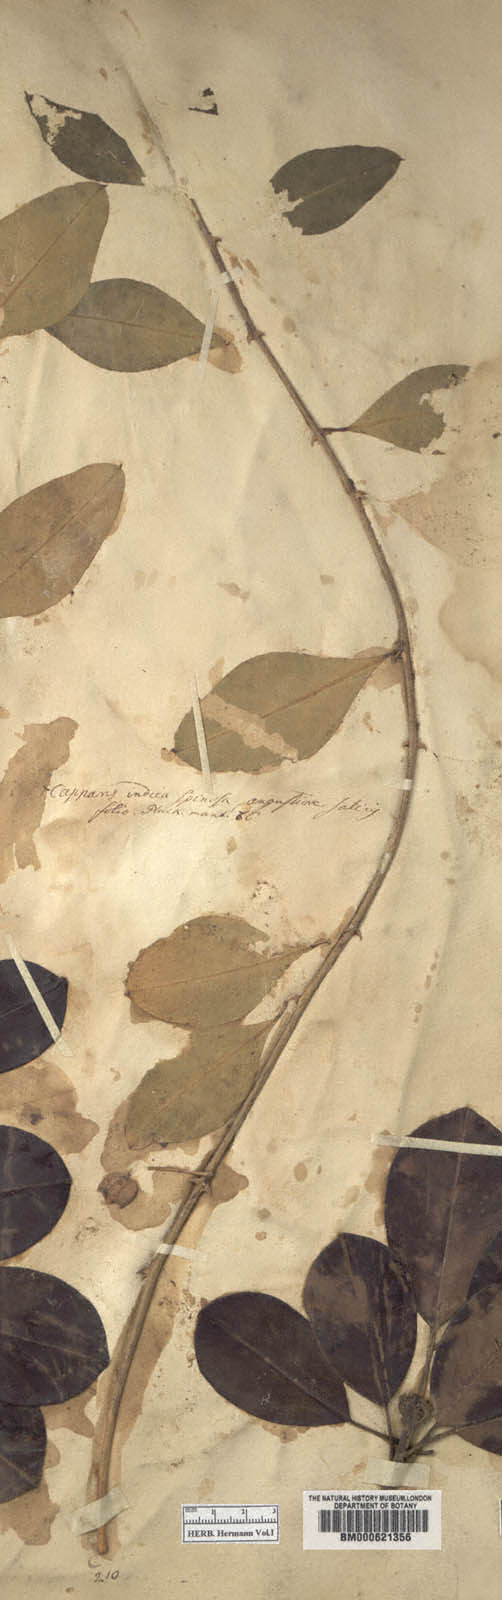 Capparis indica spinosa angustiore salicis
folio. Pluk. mant.
210
HERB. Hermann Vol.I
THE NATURAL HISTORY MUSEUM, LONDON
DEPARTMENT OF BOTANY
BM000621356